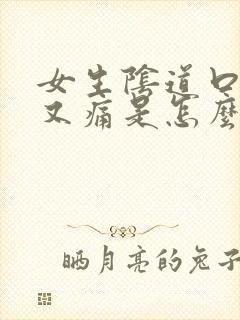 女生陰道口
又痛是怎麼
晒月亮的兔子